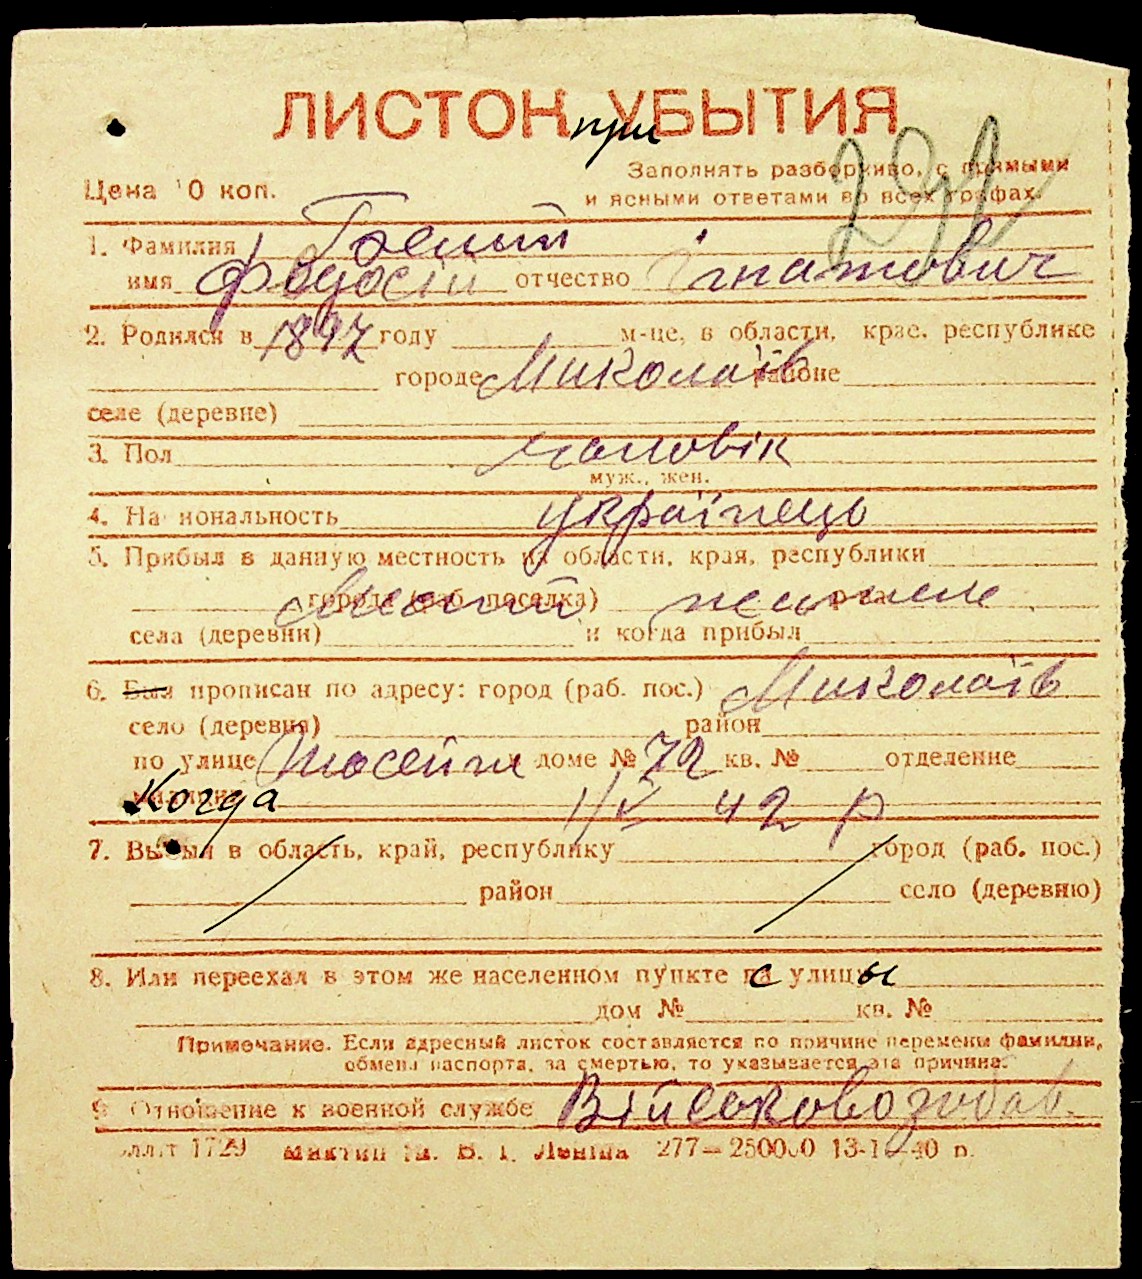 ЛИСТОК при УБЫТИЯ
Цена 10 коп.
Заполнять разборчиво, с прямыми
и ясными ответами во всех графах
1. Фамилия
имя Федосій отчество Ігнатович
2. Родился в 1897 году м-це, в области, крае, республике
городе Миколаїв районе
селе (деревне)
3. Пол чоловік
муж., жен.
4. Национальность українець
5. Прибыл в данную местность из области, края, республики
города (раб. поселка) района
села (деревни) и когда прибыл
6. Был прописан по адресу: город (раб. пос.) Миколаїв
село (деревня) район
по улице доме № 72 кв. № отделение
милиции Когда 1/V 42 р
7. Выбыл в область, край, республику город (раб. пос.)
район село (деревню)
8. Или переехал в этом же населенном пункте с улицы
дом № кв. №
Примечание. Если адресный листок составляется по причине перемены фамилии,
обмена паспорта, за смертью, то указывается эта причина.
9. Отношение к военной службе Військовозобов.
1729 ім. В. І. Леніна 277—250000 40 р.